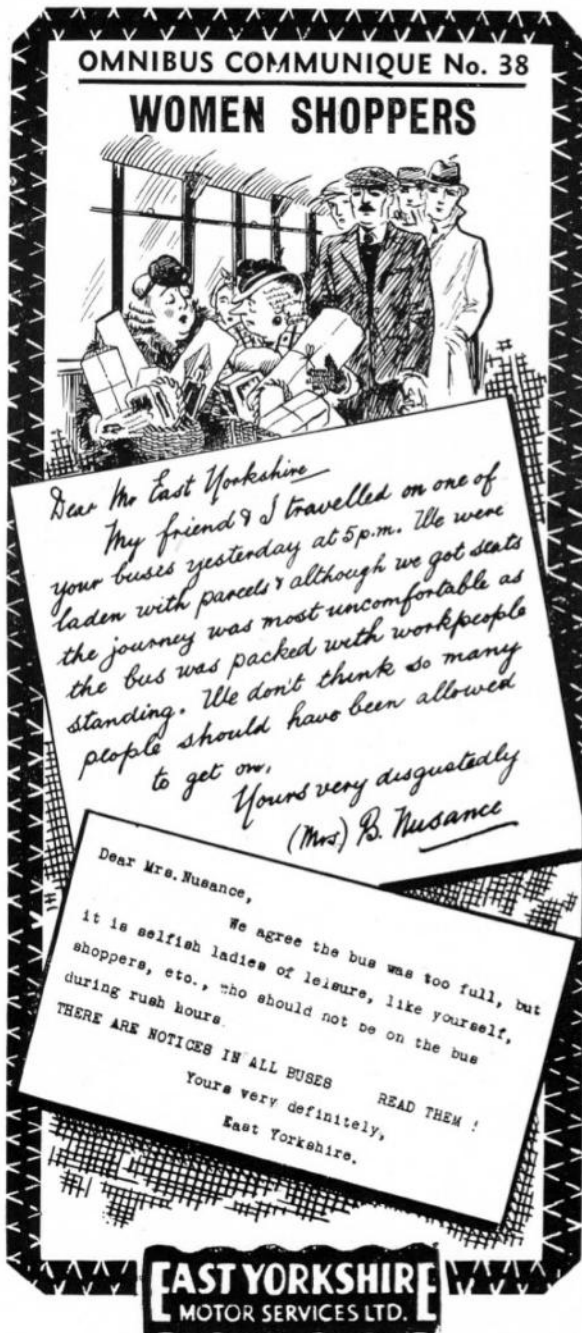 OMNIBUS COMMUNIQUE No. 38
WOMEN SHOPPERS
Dear Mr East Yorkshire
My friend & I travelled on one of
your buses yesterday at 5 p.m. We were
laden with parcels & although we got seats
the journey was most uncomfortable as
the bus was packed with workpeople
standing. We don't think so many
people should have been allowed
to get on.
Yours very disgustedly
(Mrs) B. Nusance
Dear Mrs. Nusance,
We agree the bus was too full, but
it is selfish ladies of leisure, like yourself,
shoppers, etc., who should not be on the bus
during rush hours.
THERE ARE NOTICES IN ALL BUSES READ THEM !
Yours very definitely,
East Yorkshire.
EAST YORKSHIRE
MOTOR SERVICES LTD.